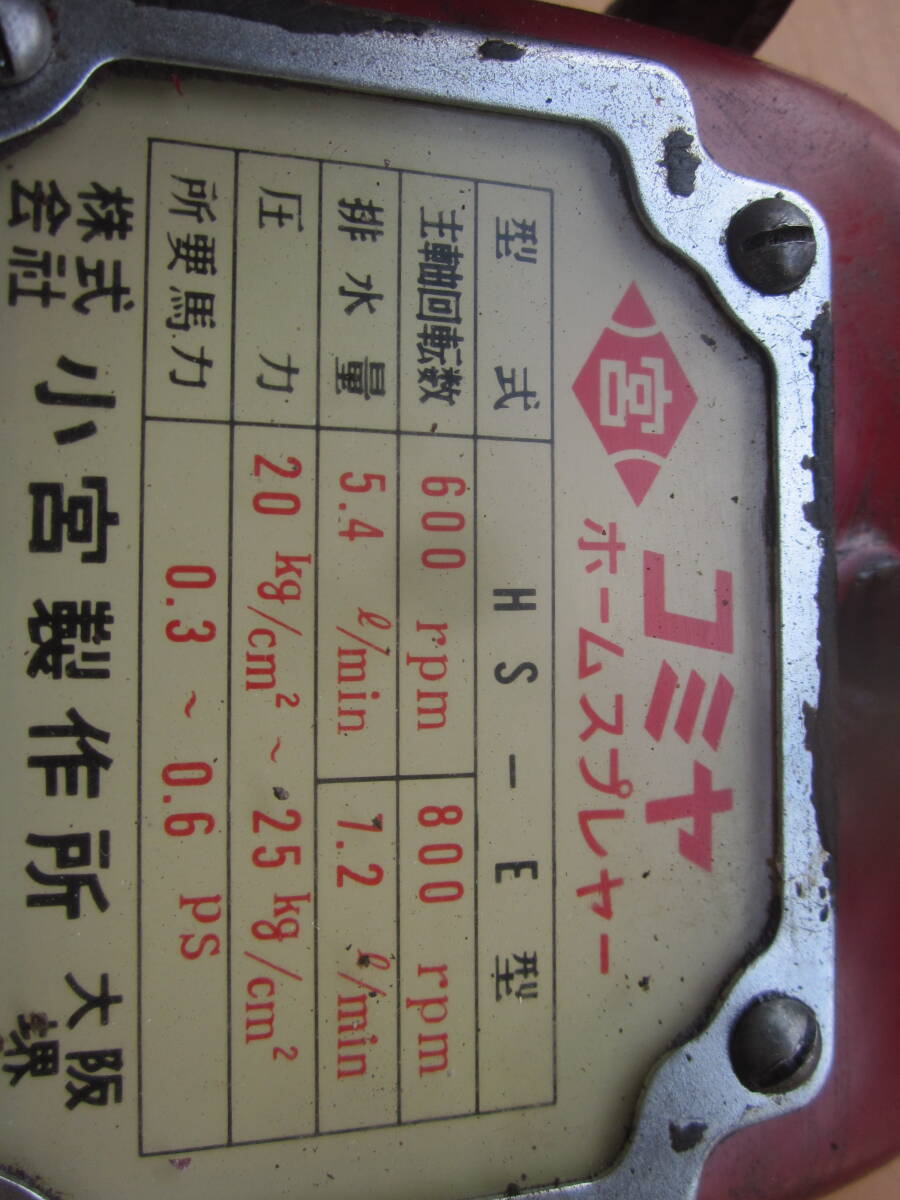 宮 コミヤ
ホームスプレヤー
型式 HS-E型
主軸回転数 600 rpm 800 rpm
排水量 5.4 ℓ/min 7.2 ℓ/min
圧力 20 kg/cm² ~ 25 kg/cm²
所要馬力 0.3 ~ 0.6 PS
株式会社 小宮製作所 大阪 堺